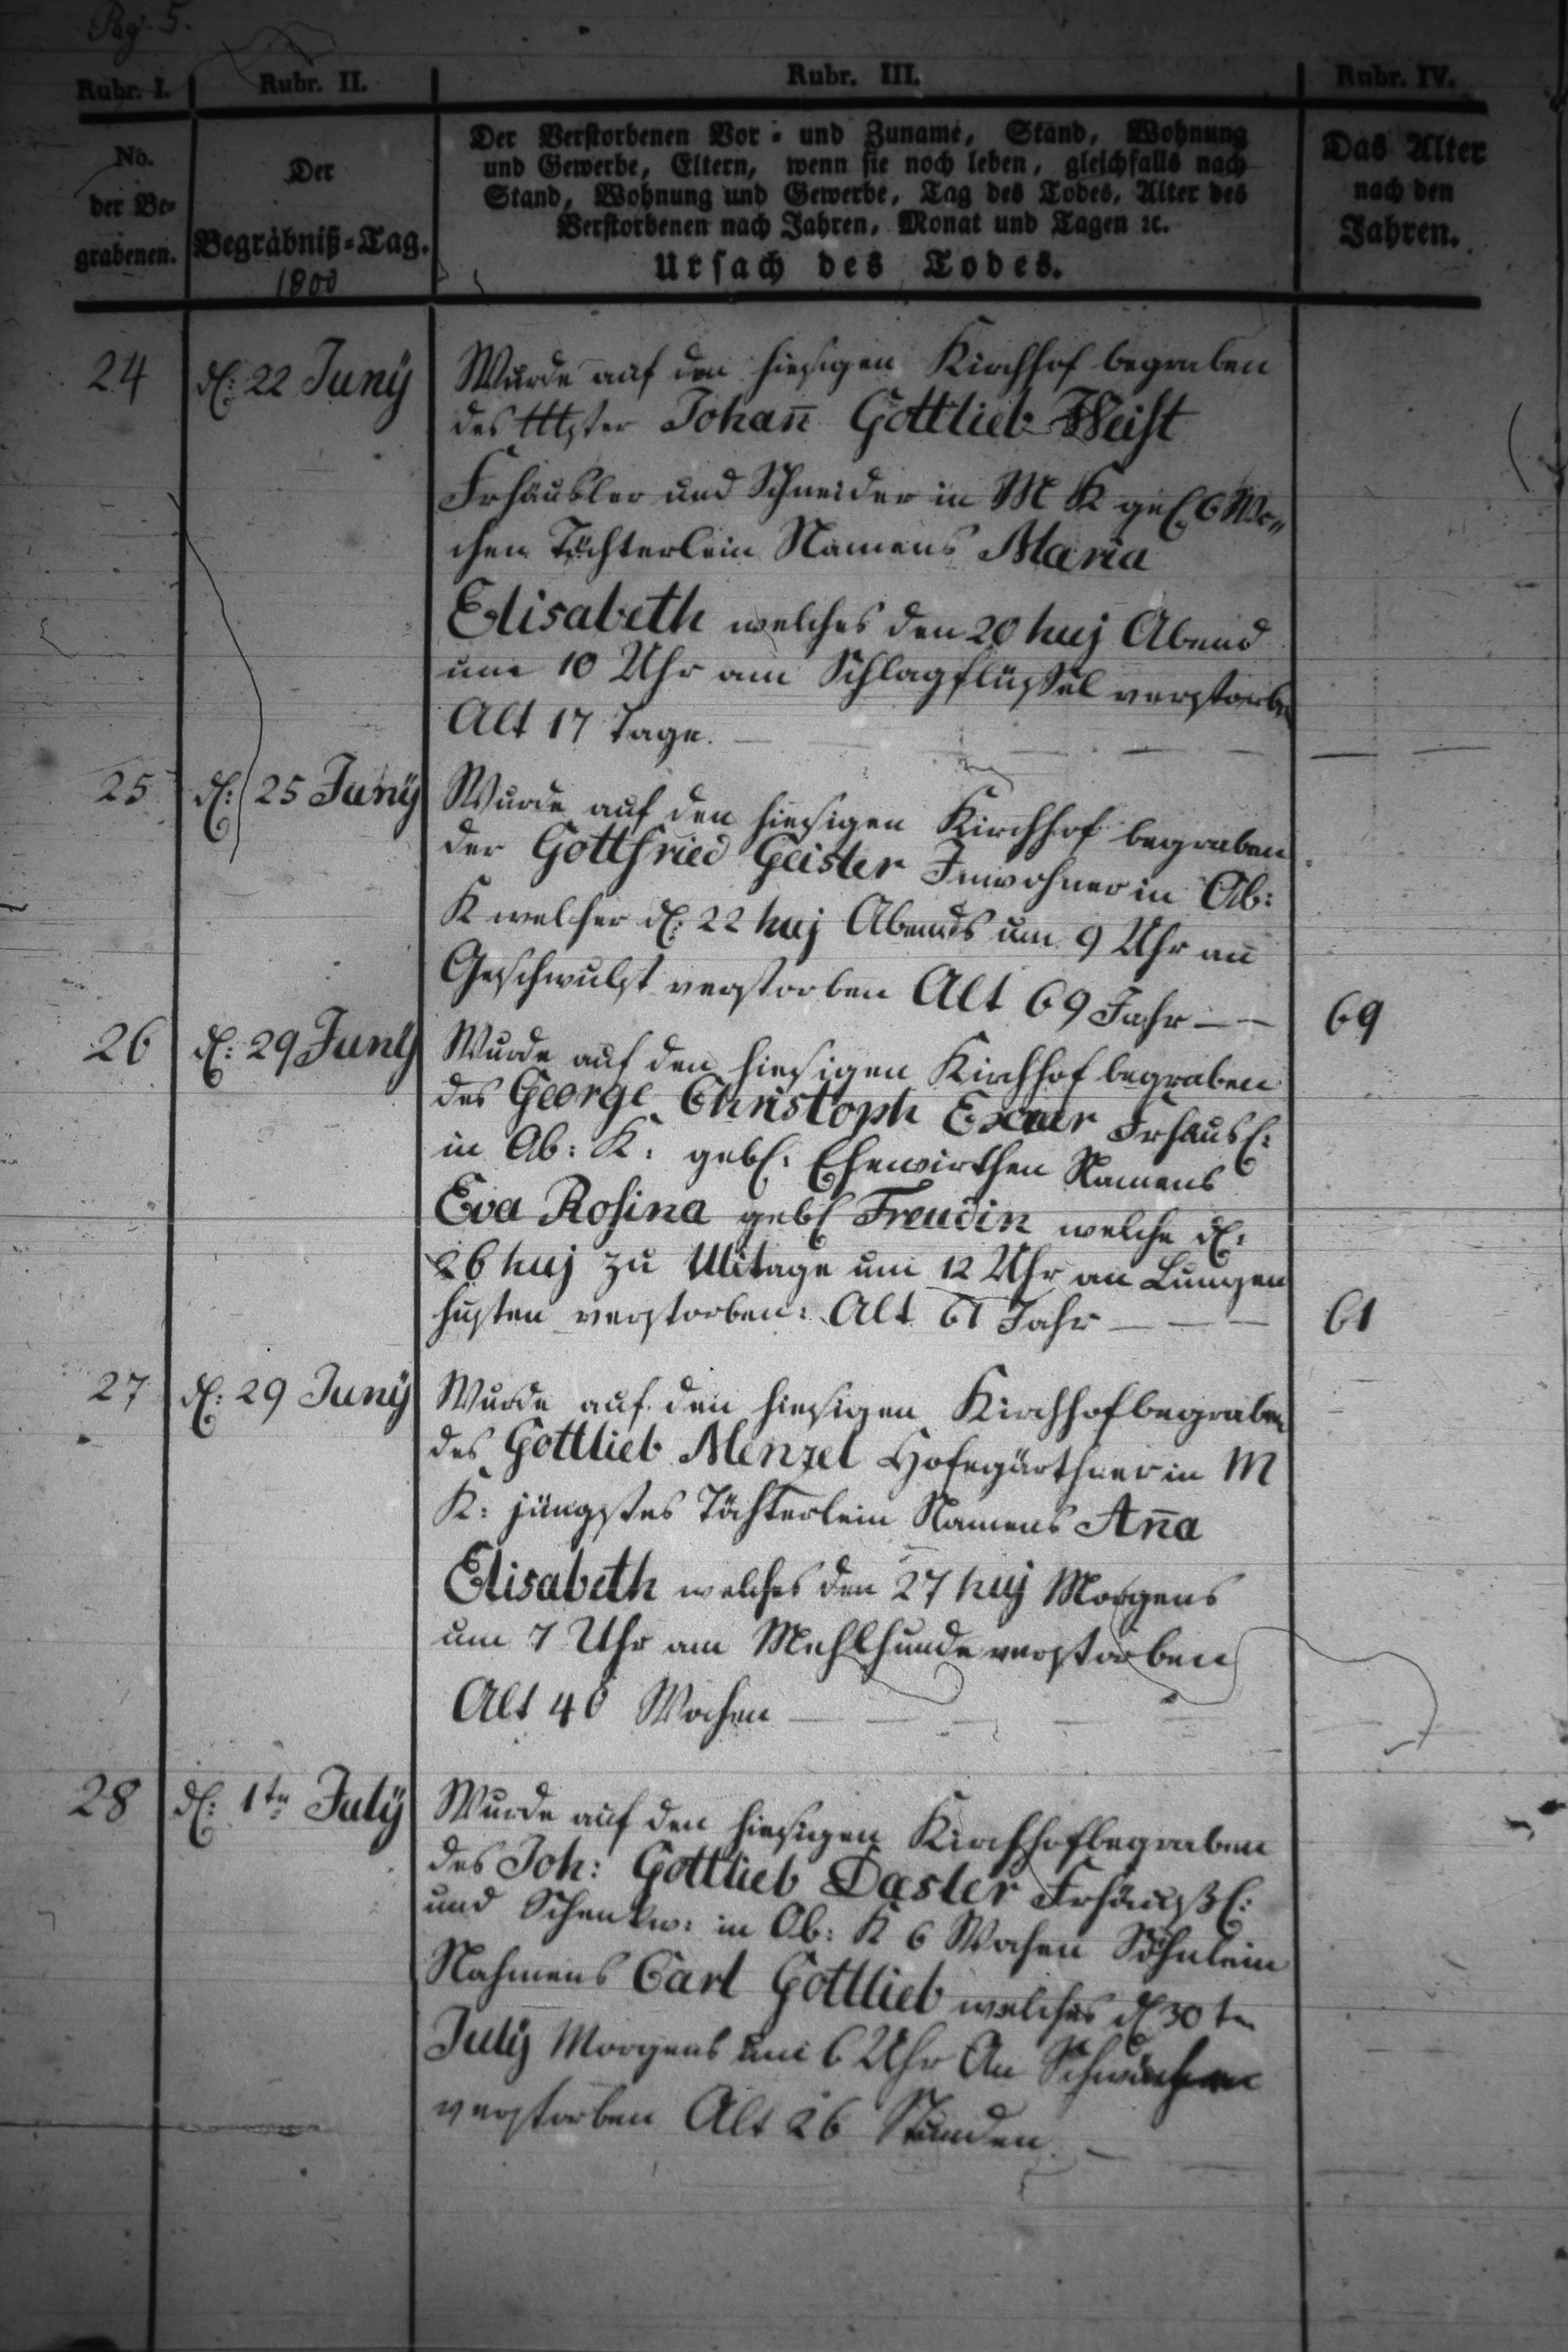 Pag. 5.
Rubr. I. Rubr. II. Rubr. III. Rubr. IV.
No. der Be= grabenen.
Der Begräbniß=Tag. 1800
Der Verstorbenen Vor= und Zuname, Stand, Wohnung
und Gewerbe, Eltern, wenn sie noch leben, gleichfalls nach
Stand, Wohnung und Gewerbe, Tag des Todes, Alter des
Verstorbenen nach Jahren, Monat und Tagen ꝛc.
Ursach des Todes.
Das Alter nach den Jahren.
24 d: 22 Juny Wurde auf den hiesigen Kirchhof begraben
des Mstr Johan̄ Gottlieb Weist
Frhäusler und Schneider in M K 6 Wo„
chen Töchterlein Namens Maria
Elisabeth welches den 20 huj Abend
um 10 Uhr am Schlagflüssel verstorben
Alt 17 Tage.
25 d: 25 Juny Wurde auf den hiesigen Kirchhof begraben
der Gottfried Geister Inwohner in Ob:
K welcher d: 22 huj Abends um 9 Uhr an
Geschwulst verstorben Alt 69 Jahr — — 69
26 d: 29 Juny Wurde auf den hiesigen Kirchhof begraben
des George Christoph Frhäusl:
in Ob: K: gebl: Ehewirthen Namens
Eva Rosina gebl Freudin welche d:
26 huj zu Mitage um 12 Uhr an Lungen
husten verstorben: Alt 61 Jahr — — — 61
27 d: 29 Juny Wurde auf den hiesigen Kirchhof begraben
des Gottlieb Menzel Hofegärthner in M
K: jüngstes Töchterlein Namens An̄a
Elisabeth welches den 27 huj Morgens
um 7 Uhr am Mehlhunde verstorben
Alt 40 Wochen
28 d: 1tn July Wurde auf den hiesigen Kirchhof begraben
des Joh: Gottlieb Dæsler Frhäußl:
und Schenkw: in Ob: K 6 Wochen Söhnlein
Nahmens Carl Gottlieb welches d 30 tn
July Morgens um 6 Uhr An
verstorben Alt 26 Stunden.